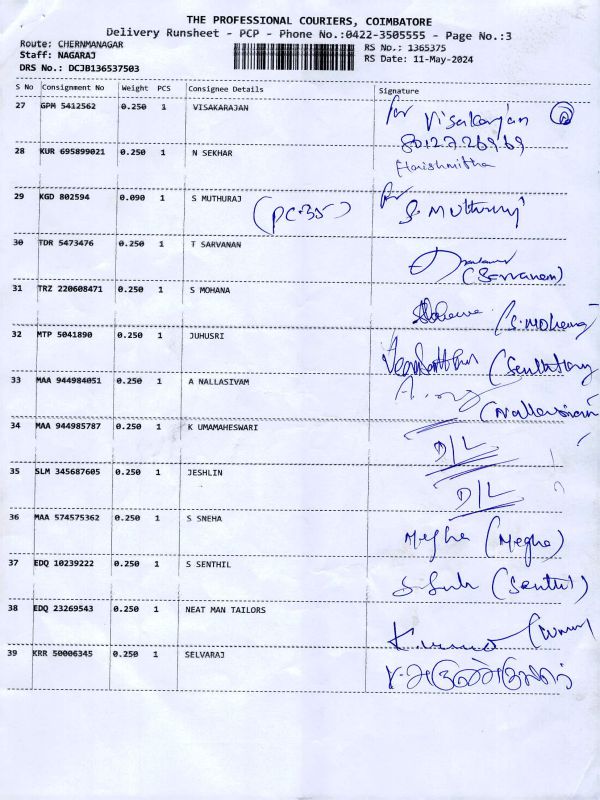 THE PROFESSIONAL COURIERS, COIMBATORE
Delivery Runsheet - PCP - Phone No.:0422-3505555 - Page No.:3
Route: CHERNMANAGAR RS No.: 1365375
Staff: NAGARAJ RS Date: 11-May-2024
DRS No.: DCJB136537503
S No Consignment No Weight PCS Consignee Details Signature
27 GPM 5412562 0.250 1 VISAKARAJAN for
Visakarajan
8012726969
28 KUR 695899021 0.250 1 N SEKHAR Harishmitha
29 KGD 802594 0.090 1 S MUTHURAJ for
(PC-35) S. Muthuraj
30 TDR 5473476 0.250 1 T SARVANAN
(Sarvanan)
31 TRZ 220608471 0.250 1 S MOHANA
(S.Mohana)
32 MTP 5041890 0.250 1 JUHUSRI
33 MAA 944984051 0.250 1 A NALLASIVAM
(Nallasivam)
34 MAA 944985787 0.250 1 K UMAMAHESWARI
D/L
35 SLM 345687605 0.250 1 JESHLIN
D/L
36 MAA 574575362 0.250 1 S SNEHA
Megha (Megha)
37 EDQ 10239222 0.250 1 S SENTHIL
(Senthil)
38 EDQ 23269543 0.250 1 NEAT MAN TAILORS
39 KRR 50006345 0.250 1 SELVARAJ